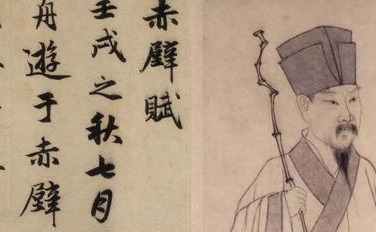 赤壁賦
壬戌之秋七月
舟遊于赤壁